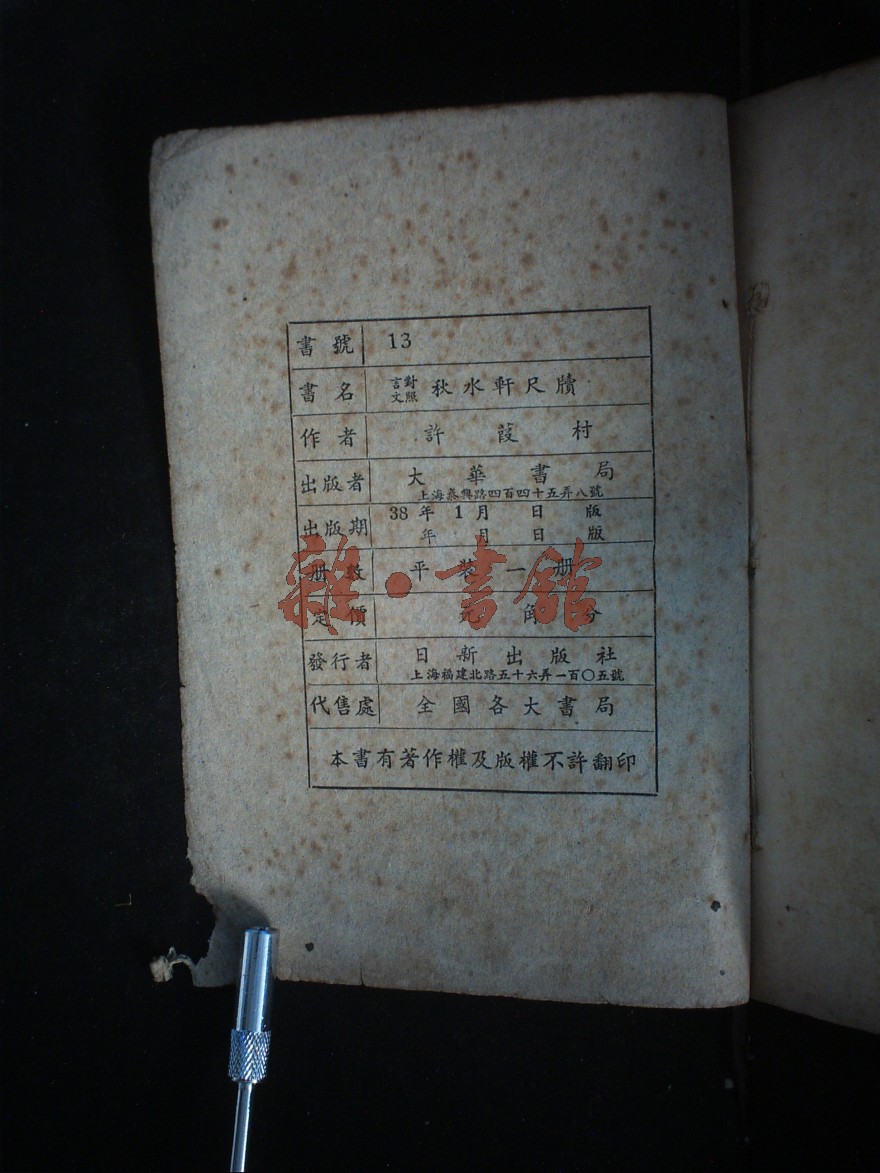 書號 13
書名 言文對照 秋水軒尺牘
作者 許葭村
出版者 大華書局
上海泰興路四百四十五弄八號
出版期 38年1月 日 版
年 月 日 版
册數 平裝一册
定價 元角分
發行者 日新出版社
上海福建北路五十六弄一百〇五號
代售處 全國各大書局
本書有著作權及版權不許翻印
雜·書館